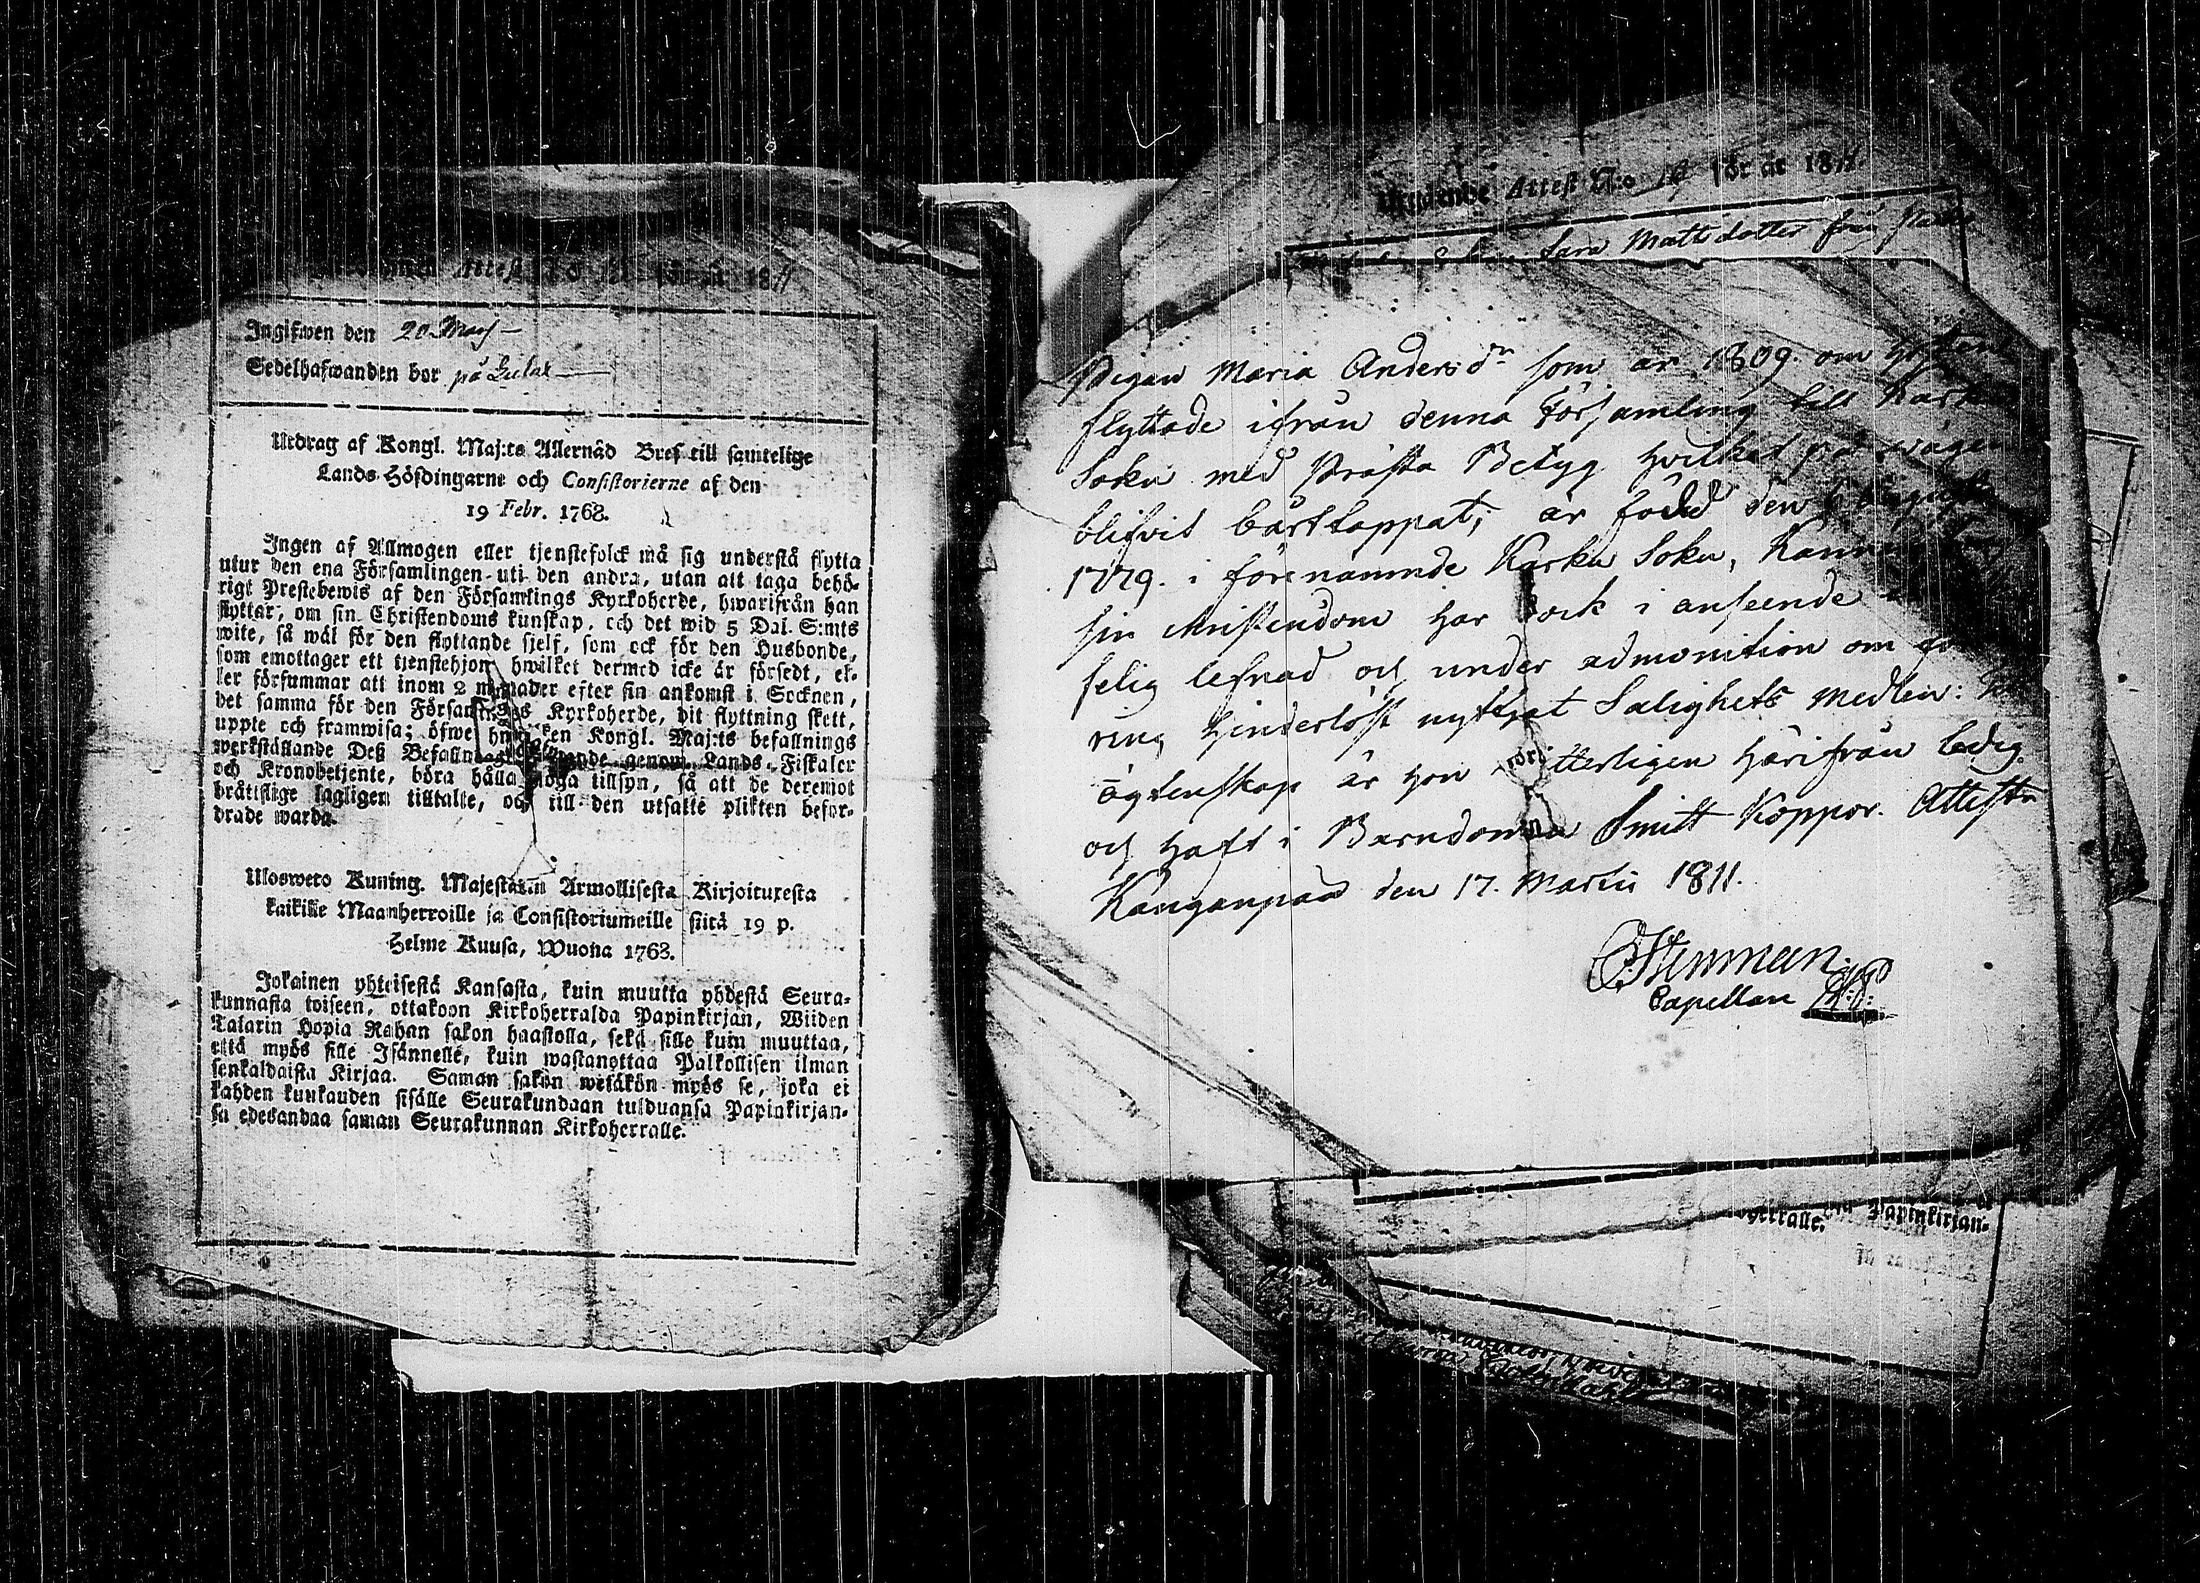 Attest N:o för år 1811
Ingifwen den 20 Marj
Sedelhafwanden bor på
Utdrag af Kongl. Maj:ts Allernåd Bref till samtelige
Lands-Höfdingarne och Consistorierne af den
19 Febr. 1768.
Ingen af Allmogen eller tjenstefolck må sig understå flytta
utur den ena Församlingen uti den andra, utan att taga behö-
rigt Prestebewis af den Församlings Kyrkoherde, hwarifrån han
flyttar, om sin Christendoms kunskap, och det wid 5 Dal. S:mts
wite, så wäl för den flyttande sjelf, som ock för den Husbonde,
som emottager ett tjenstehjon, hwilket dermed icke är försedt, el-
ler försummar att inom 2 månader efter sin ankomst i Socknen,
det samma för den Församlings Kyrkoherde, dit flyttning skett,
uppte och framwisa; öfwer hwilken Kongl. Maj:ts befallnings
werkställande Deß genom Lands-Fiskaler
och Kronobetjente, böra hålla noga tillsyn, så att de deremot
brättslige lagligen tilltalte, och till den utsatte plikten befor-
drade warda.
Ulosweto Kuning. Majestätin Armollisesta Kirjoituxesta
kaikille Maanherroille ja Consistoriumeille siitä 19 p.
Helme Kuusa, Wuona 1768.
Jokainen yhteisestä Kansasta, kuin muutta yhdestä Seura-
kunnasta toiseen, ottakoon Kirkoherralda Papinkirjan, Wiiden
Talarin Hopia Rahan sakon haastolla, sekä sille kuin muuttaa,
että myös sille Isännelle, kuin wastanottaa Palkollisen ilman
senkaldaista Kirjaa. Saman sakon wetäkön myös se, joka ei
kahden kuukauden sisälle Seurakundaan tulduansa Papinkirjan-
sa edesandaa saman Seurakunnan Kirkoherralle.
Attest N:o för år 1811.
Sara Matts dotter från
Pigan Maria Andersdr som år 1809. om
flyttade ifrån denna Församling till Karku
Sokn med Prästa Betyg hvilket på vägen
blifvit bårttappat, är född den
1779. i förenämnde Karku Sokn,
sin christendom har ock i anseende
selig lefnad och under admonition om
ring hinderlöst nyttjat Salighets Medlen:
ägtenskap är hon ledig
och haft i Barndomen Smitt Koppor. Attestr
Kanganpää den 17. Martii 1811.
Capellan
Papinkirjan-